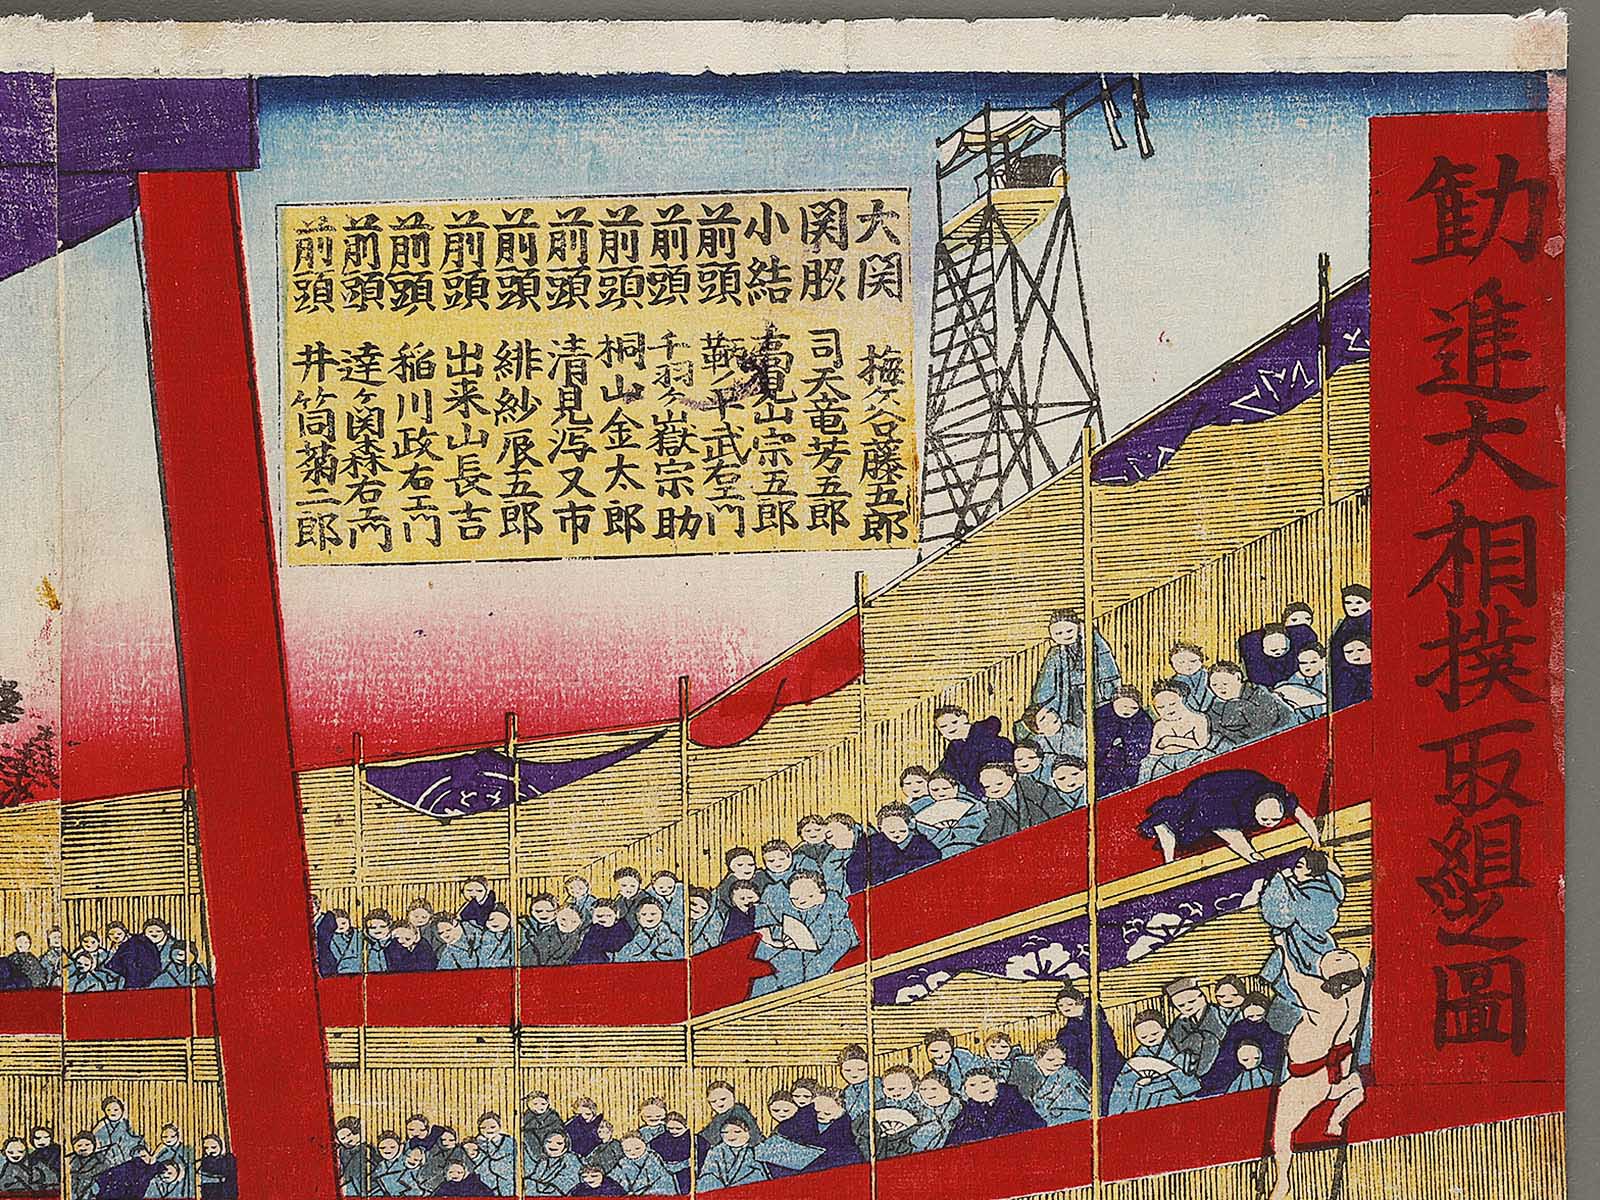 勧進大相撲取組之圖
大関 梅ヶ谷藤五郎
関脇 司天竜芳五郎
小結 高見山宗五郎
前頭 鞆ノ平武右エ門
前頭 千羽ヶ嶽宗助
前頭 桐山金太郎
前頭 清見潟又市
前頭 緋紗辰五郎
前頭 出来山長吉
前頭 稲川政右エ門
前頭 達ヶ関森右エ門
前頭 井筒菊二郎